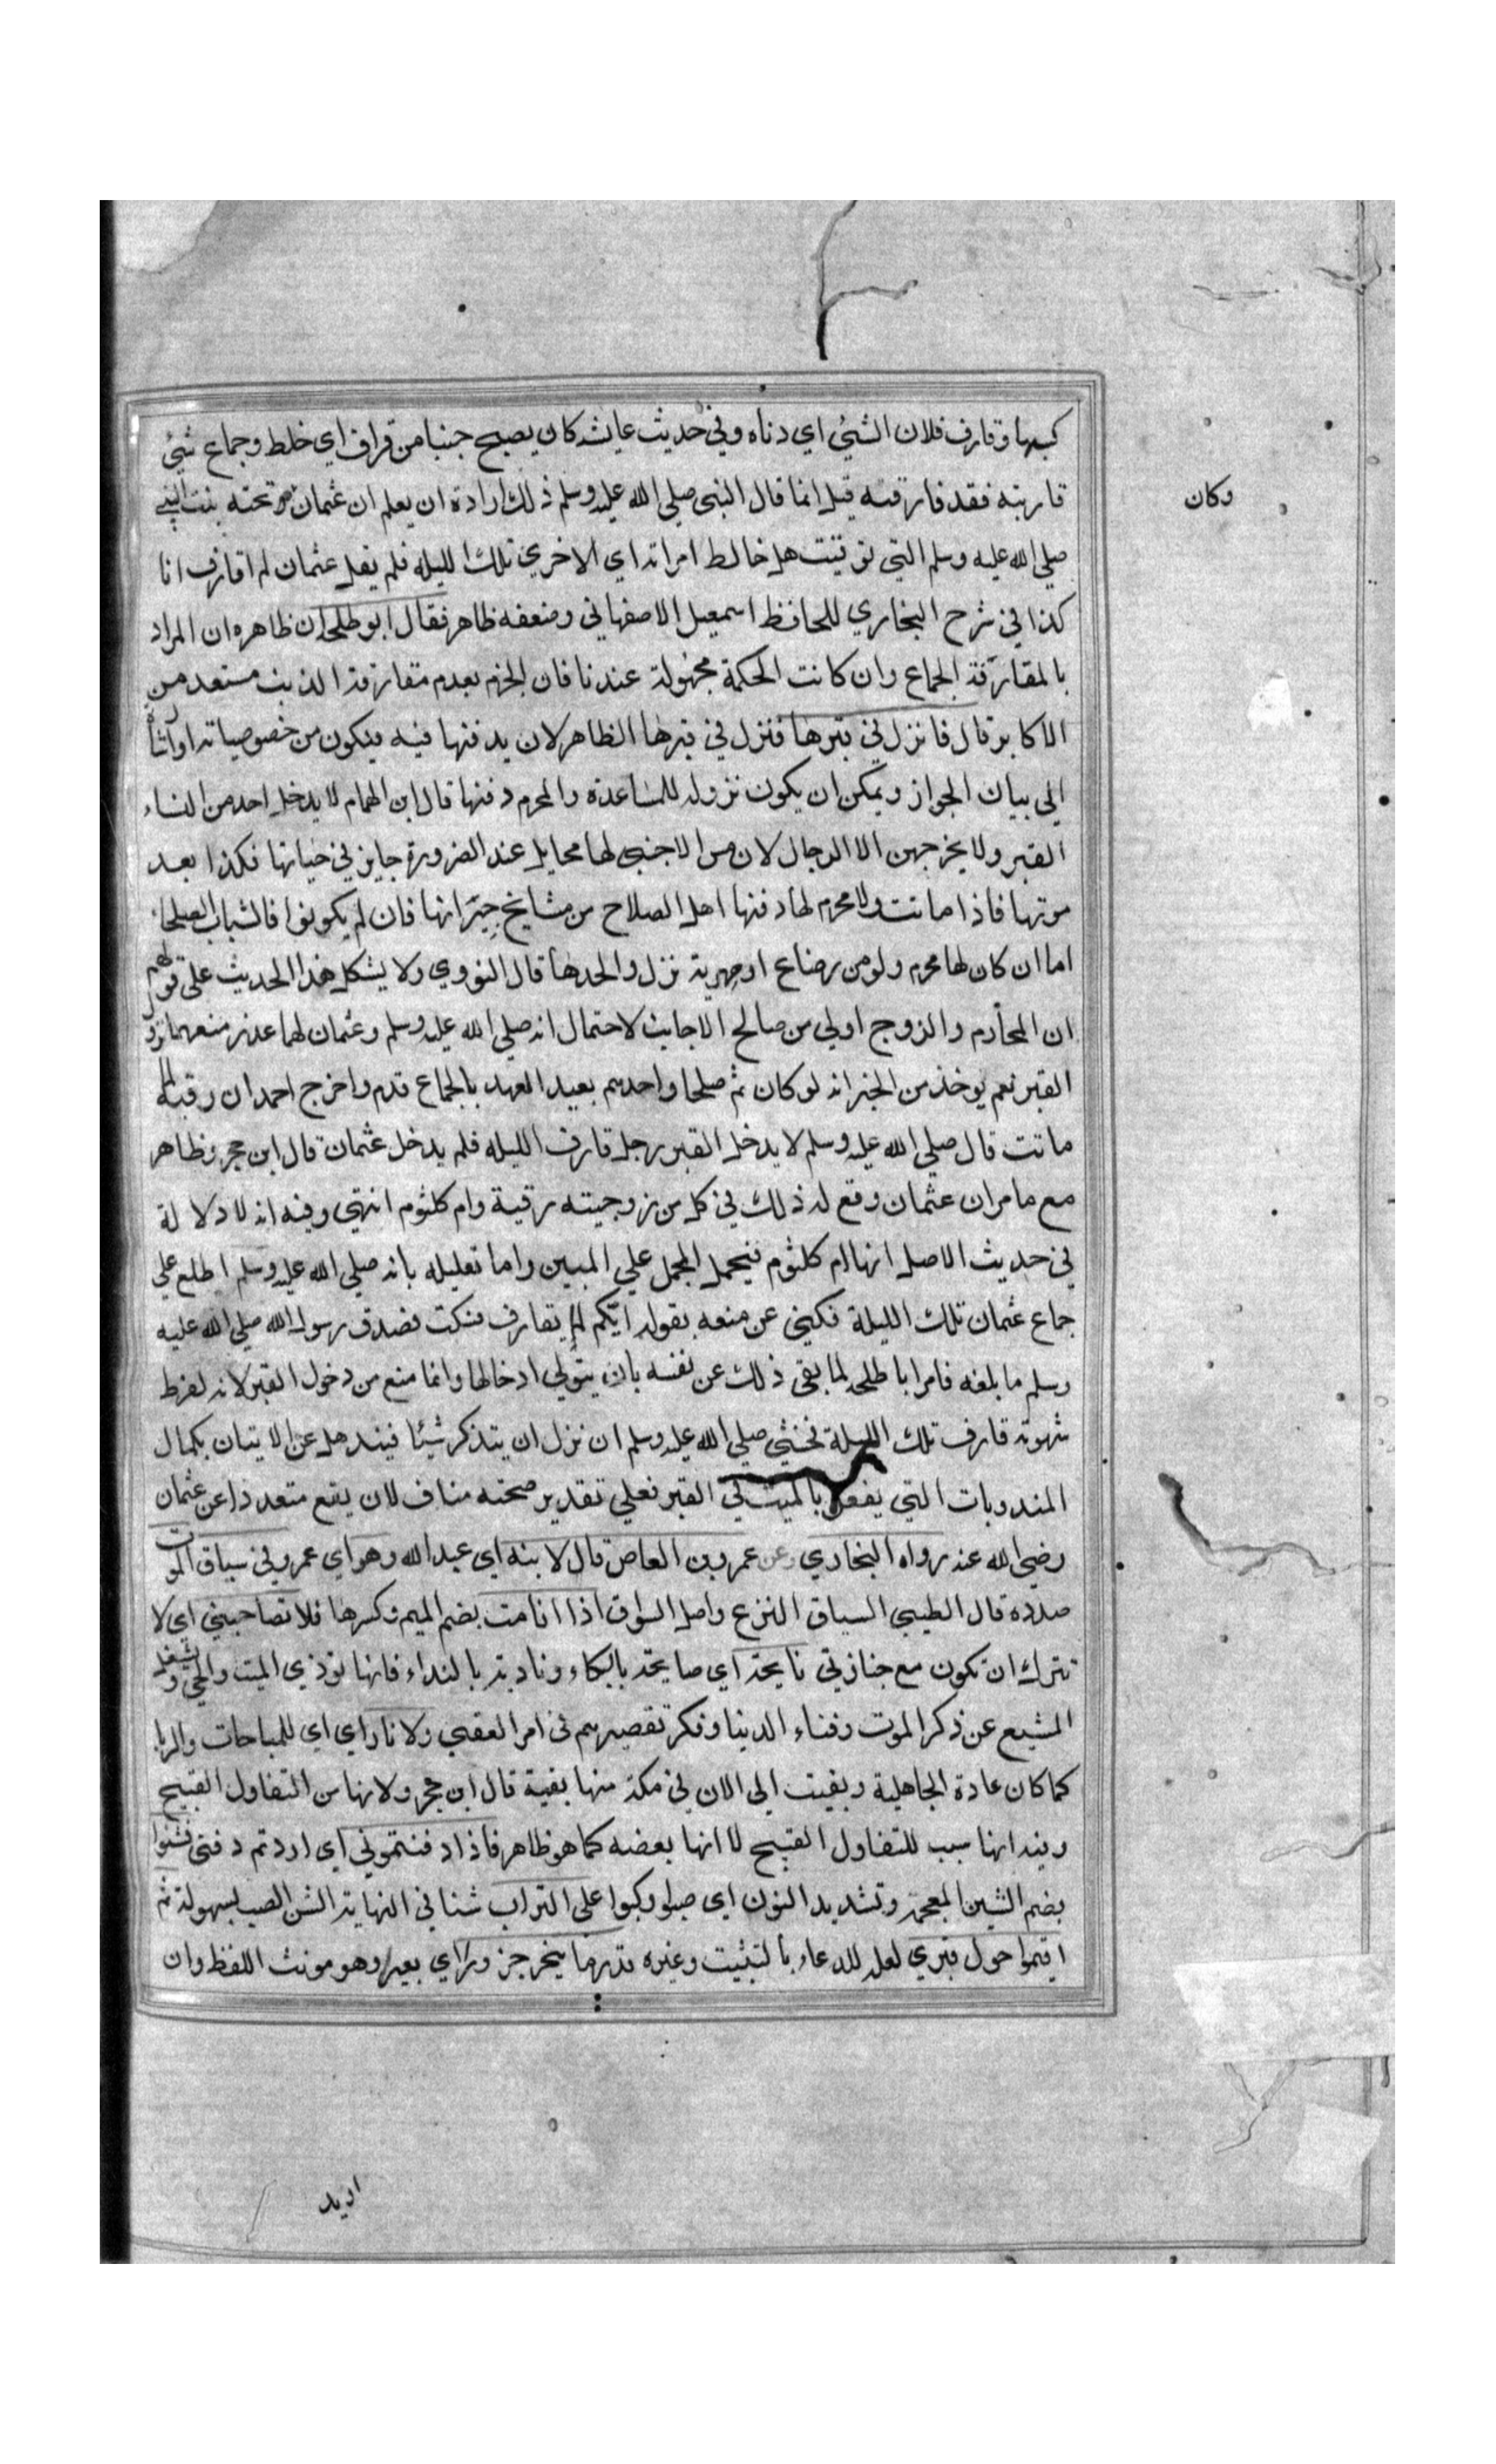 كسبها وقارف فلان الشيئ اي دناه وفي حديث عايشه كان يصبح جنبا من قراف اي خلط وجماع شيئ
قاربته فقد قارفته قيل انما قال النبي صلي الله عليه وسلم ذلك ارادة ان يعلم ان عثمان تحته بنت النبي
وكان
صلي الله عليه وسلم التي توفيت هل خالط امراته اي الاخري تلك الليله فلم يقل عثمان لم اقارف انا
كذا في شرح البخاري للحافظ اسمعيل الاصفهاني وضعفه ظاهر فقال ابو طلحة ان ظاهره ان المراد
بالمقارفة الجماع وان كانت الحكمة مجهولة عندنا فان الجزم بعدم مقارفة الذنب مستعد من
الاكابر قال فانزل في قبرها فنزل في قبرها الظاهر لان يدفنها فيه فيكون من خصوصياته او
الي بيان الجواز ويمكن ان يكون نزوله للمساعدة والمحرم دفنها قال ابن الهمام لا يدخل احد من النساء
القبر ولا يخرجهن الا الرجال لان مس الاجنبي لها محايل عند الضرورة جايز في حياتها فكذا بعد
موتها فاذا ماتت ولا محرم لها دفنها اهل الصلاح من مشايخ جيرانها فان لم يكونوا فالشباب الصلحا
اما ان كان لها محرم ولو من رضاع او صهرية نزل والحدها قال النووي ولا يشكل هذا الحديث علي قولهم
ان المحارم والزوج اولي من صالح الاجانب لاحتمال انه صلي الله عليه وسلم وعثمان لهما عذر منعهما نزول
القبر نعم يوخذ من الخبر انه لو كان ثم صلحا واحدهم بعيد العهد بالجماع قدم واخرج احمد ان رقية لما
ماتت قال صلي الله عليه وسلم لا يدخل القبر رجل قارف الليله فلم يدخل عثمان قال ابن حجر وظاهر
مع ما مر ان عثمان وقع له ذلك في كل من زوجيته رقية وام كلثوم انتهي وفيه انه لا دلالة
في حديث الاصل انها ام كلثوم فيحمل المجمل علي المبين واما تعليله بانه صلي الله عليه وسلم اطلع علي
جماع عثمان تلك الليلة فكني عن منعه بقوله ايكم لم يقارف فسكت فصدق رسول الله صلي الله عليه
وسلم ما بلغه فامر ابا طلحه لما بقي ذلك عن نفسه بان يتولي ادخالها وانما منع من دخول القبر لانه لفرط
شهوته قارف تلك الليلة فخشي صلي الله عليه وسلم ان نزل ان يتذكر شيئا فيذهل عن الاتيان بكمال
المندوبات التي يفعل بالميت في القبر فعلي تقدير صحته مناف لان يقع متعددا عن عثمان
رضي الله عنه رواه البخاري وعن عمرو بن العاص قال لابنه اي عبد الله وهو اي عمرو في سياق الموت
صدده قال الطيبي السياق النزع واصل السواق اذا انا مت بضم الميم وكسرها فلا تصاحبني اي لا
تترك ان تكون مع جنازتي نايحة اي صايحة بالبكاء ونادبة بالنداء فانها توذي الميت والحي وتشغل
المشيع عن ذكر الموت وفناء الدنيا وفكر تقصيرهم في امر العقبي ولا نار اي اي للمباحات والريا
كما كان عادة الجاهلية وبقيت الي الان في مكة منها بقية قال ابن حجر ولانها من التفاول القبيح
وفيه انها سبب للتفاول القبيح لا انها بعضه كما هو ظاهر فاذا دفنتموني اي اردتم دفني فشنوا
بضم الشين المعجمة وتشديد النون اي صبوا وكبوا علي التراب شنا في النهاية الشن الصب بسهولة ثم
اقيموا حول قبري لعله للدعاء بالتثبيت وغيره قدر ما ينحر جزور اي بعير وهو مونث اللفظ وان
اريد